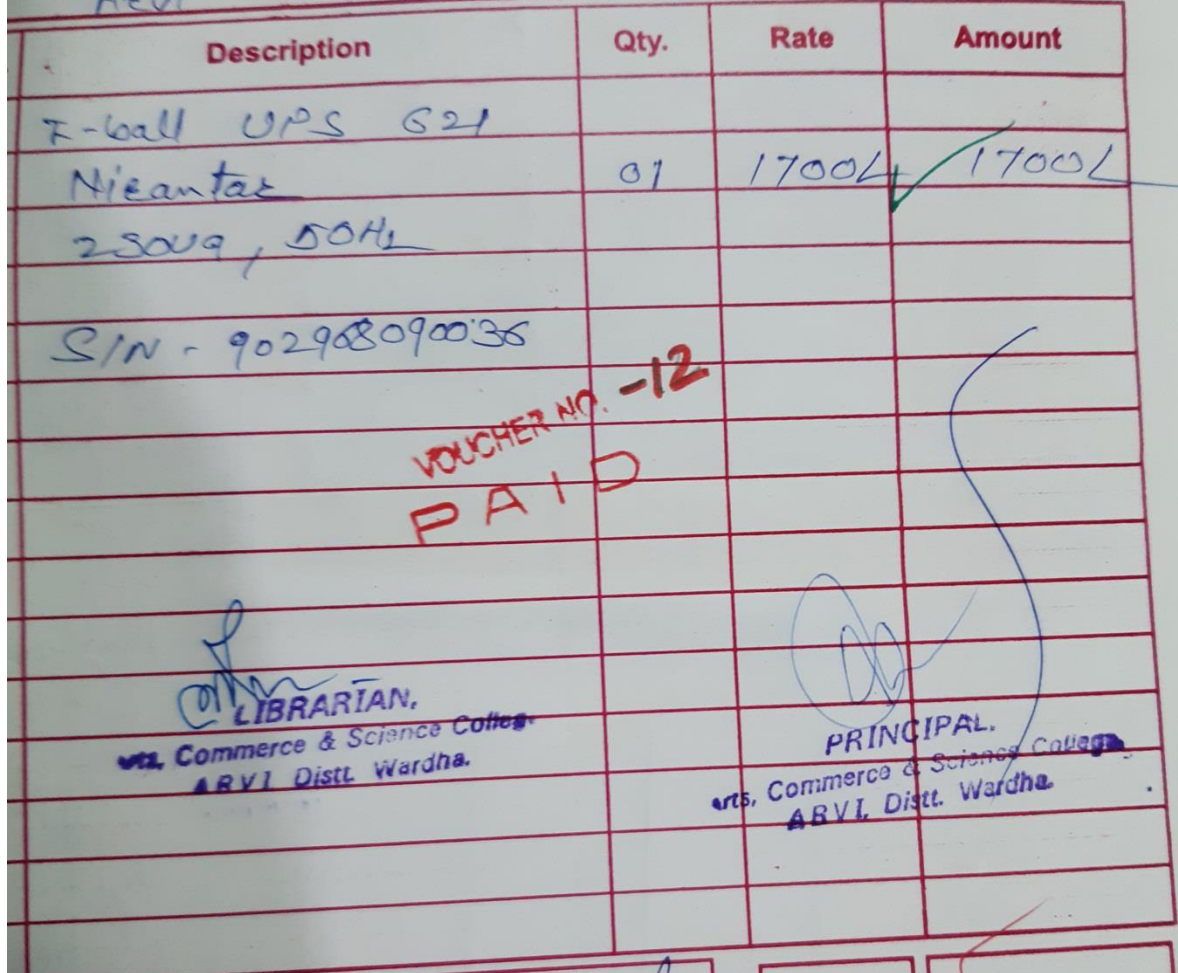 Description Qty. Rate Amount
I-ball UPS 621
Nirantar 01 1700/- 1700/-
230Vq, 50Hz
S/N - 902968090036
VOUCHER NO. -12
PAID
LIBRARIAN,
Arts, Commerce & Science College
ARVI Distt. Wardha.
PRINCIPAL.
Arts, Commerce & Science College
ARVI, Distt. Wardha.